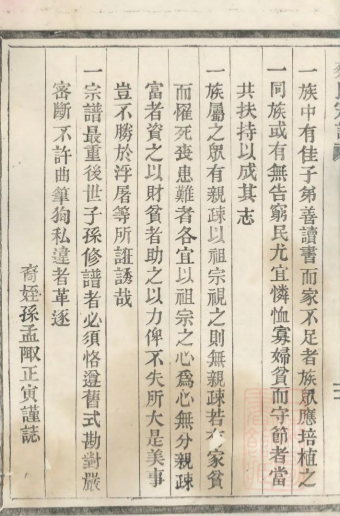 一族中有佳子弟善讀書而家不足者族眾應培植之
一同族或有無告窮民尤宜憐恤寡婦貧而守節者當
共扶持以成其志
一族屬之眾有親疎以祖宗視之則無親疎若家貧
而罹死喪患難者各宜以祖宗之心為心無分親疎
富者資之以財貧者助之以力俾不失所大是美事
豈不勝於浮屠等所誑誘哉
一宗譜最重後世子孫修譜者必須恪遵舊式勘對嚴
密斷不許曲筆狥私違者革逐
裔姪孫孟陬正寅謹誌